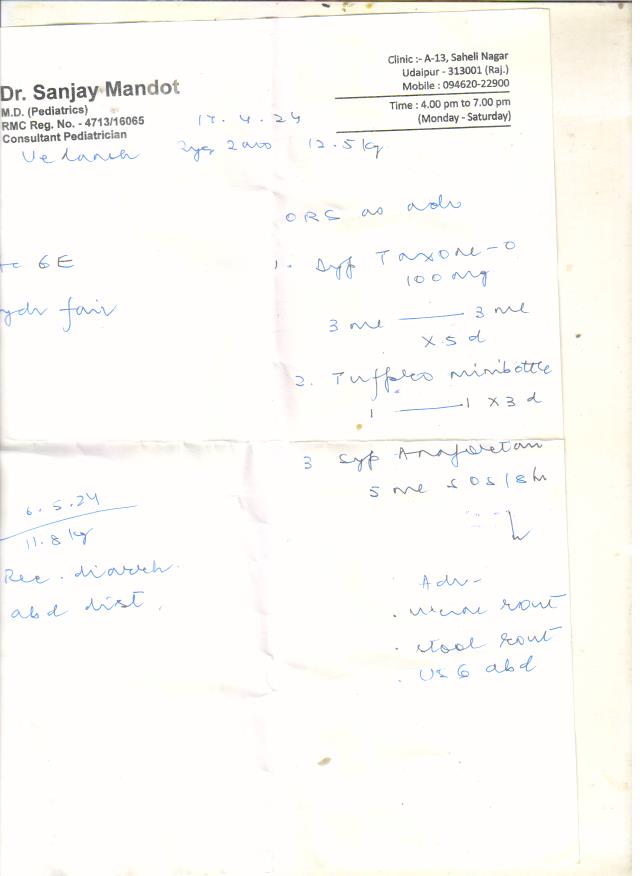 Dr. Sanjay Mandot
M.D. (Pediatrics)
RMC Reg. No. - 4713/16065
Consultant Pediatrician
Clinic :- A-13, Saheli Nagar
Udaipur - 313001 (Raj.)
Mobile : 094620-22900
Time : 4.00 pm to 7.00 pm
(Monday - Saturday)
17.4.24
12.5 kg
ORS as adv
6E
fair
1. Syp Taxone-O
100 mg
3 ml — 3 ml
x 5 d
2. Tuffpro minibottle
1 — 1 x 3 d
3 Syp
5 ml SOS / 8 h
6.5.24
11.8 kg
Rec. diarrh.
abd dist.
Adv -
. urine rout
. stool rout
. USG abd